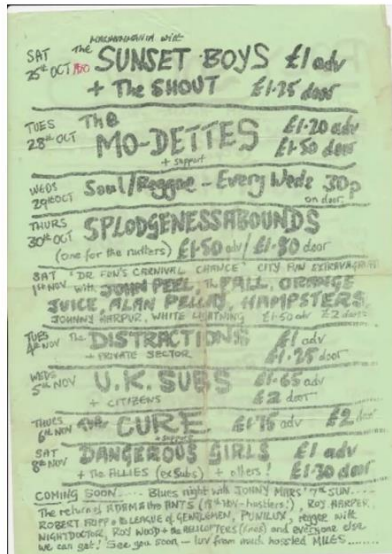 SAT 25th OCT 1980 The SUNSET BOYS £1 adv
+ The SHOUT £1·25 door
TUES 28th OCT The MO-DETTES £1·20 adv
+ support £1·50 door
WEDS 29th OCT Soul/Reggae – Every Weds 30p
on door
THURS 30th OCT SPLODGENESSABOUNDS
(one for the nutters) £1·50 adv/ £1·80 door
SAT 1st NOV 'DR FON'S CARNIVAL CHANCE' CITY FUN EXTRAVAGANZA
with JOHN PEEL, The FALL, ORANGE
JUICE, ALAN PELLAY, HAMPSTERS,
JOHNNY HARPUR, WHITE LIGHTNING £1·50 adv £2 door
TUES 4th NOV The DISTRACTIONS £1 adv
+ PRIVATE SECTOR £1·25 door
WEDS 5th NOV U.K. SUBS £1·65 adv
+ CITIZENS £2 door
THURS 6th NOV The CURE £1·75 adv £2 door
+ support
SAT 8th NOV DANGEROUS GIRLS £1 adv
+ The ALLIES (ex Subs) + others! £1·30 door
COMING SOON..... Blues night with JOHNY MARS' 7th SUN.....
The return of ADAM & the ANTS ROY HARPER,
ROBERT FRIPP & LEAGUE of GENTLEMEN, PUNILUX, reggae with
NIGHTDOCTOR, ROY WOOD & the HELICOPTERS (lives) and everyone else
we can get! See you soon – luv from much hassled MILES.......